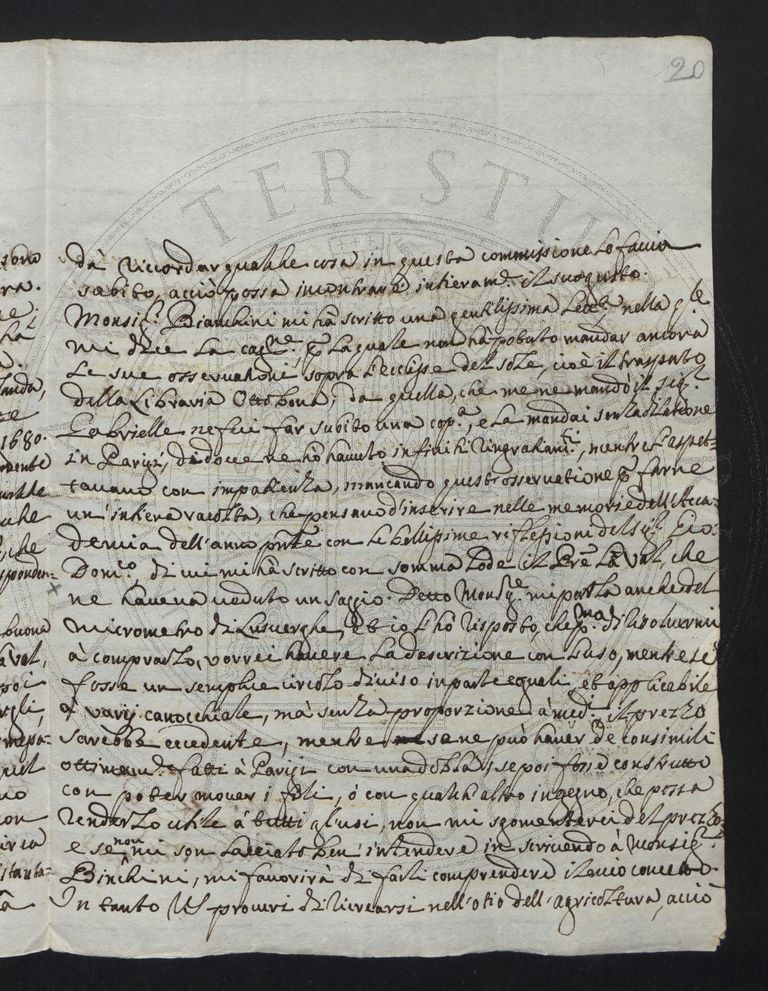 20
da riccordar qualche cosa in questa commissione lo faccia
subito, acciò possa incontrare intieram.te il suo gusto.
Monsig.r Bianchini mi hà scritto una gentilissima lett.ra nella q.le
mi dice la cag.ne p la quale non hà potuto mandar ancora
le sue osservationi sopra l'eclipse del sole, cioè il trasporto
della Libraria Ottobona; da quella, che me ne mandò il sig.r
Gabrielle ne feci far subito una cop.a, e la mandai senza dilatione
in Parigi, da dove ne hò havuto infiniti ringratiam.ti, mentre l'aspet-
tavano con impatienza, mancando questa osservatione p farne
un'intiera racolta, che pensavo d'inserire nelle memorie dell'Acca-
demia dell'anno pnte con le bellissime riflessioni del sig.r Gio:
Dom.co, di cui mi hà scritto con somma lode il Pre Laval, che
ne haveva veduto un saggio. Detto Mons.re mi parla anche del
Micrometro di Lusverghe, et io l'hò risposto, che p.ma di risolvermi
à comprarlo, vorrei havere la descrizione con l'uso, mentre se
fosse un semplice circolo diviso in parte eguali, et applicabile
à varij canocchiale, mà senza proporzione à med.i il prezzo
sarebbe eccedente, mentre se ne può haver de consimili
ottimam.te fatti à Parigi con una dobla; se poi fosse construtto
con poter mover i fili, ò con qualch'altro ingegno, che possa
renderlo utile à tutti gl'usi, non mi sgomenterei del prezzo,
e se non mi son lasciato ben'intendere in scrivendo à Monsig.r
Binchini, mi favorirà di farli comprendere il mio concetto.
In tanto VS procuri di ricrearsi nell'otio dell'agricoltura, acciò